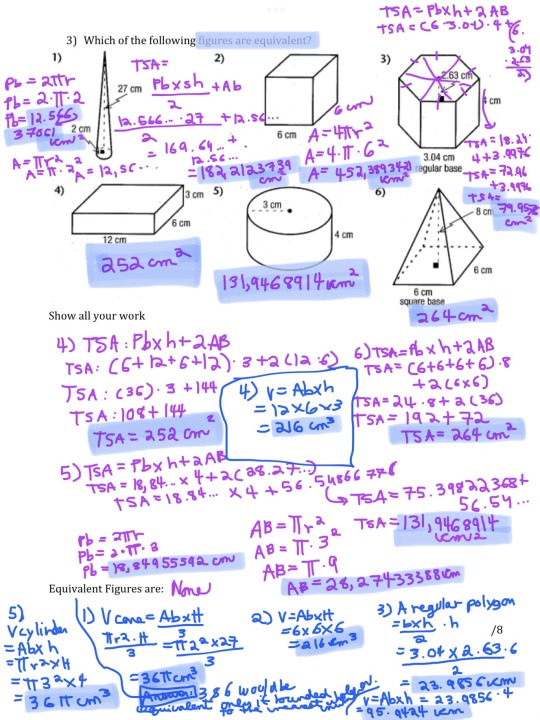 TSA = Pbxh + 2AB
3) Which of the following figures are equivalent?
TSA = (6·3.04)·4+(6.
3.04
·2.63
2)
1)
TSA=
2)
3)
Pb = 2πr
Pb = 2·π·2
Pb = 12.566
27 cm
2 cm
Pbxsh + Ab
2
12.566... · 27 + 12.56...
2
= 169.64... +
12.56...
= 182,2123739
cm²
A = πr²
A = π·2²
A = 12,56...
6 cm
6 cm
A = 4πr²
A = 4·π·6²
A = 452,3893421
cm²
2.63 cm
4 cm
3.04 cm
regular base
TSA = 18.24·
4 + 3.9976
TSA = 72.96
+ 3.9976
TSA =
79.9576
cm²
4)
3 cm
6 cm
12 cm
252 cm²
5)
3 cm
4 cm
131,9468914 cm²
6)
8 cm
6 cm
6 cm
square base
264 cm²
Show all your work
4) TSA: Pbxh + 2AB
TSA: (6+12+6+12)·3+2(12·6)
TSA: (36)·3+144
TSA: 108+144
TSA = 252 cm²
4) V = Abxh
= 12x6x3
= 216 cm³
6) TSA = Pbxh + 2AB
TSA = (6+6+6+6)·8
+ 2(6x6)
TSA = 24·8 + 2(36)
TSA = 192 + 72
TSA = 264 cm²
5) TSA = Pbxh + 2AB
TSA = 18,84... x 4 + 2(28.27...)
TSA = 18.84... x 4 + 56.548667764
TSA = 75.39822368 +
56.54...
TSA = 131,9468914
cm²
Pb = 2πr
Pb = 2·π·3
Pb = 18,84955592 cm
AB = πr²
AB = π·3²
AB = π·9
AB = 28,27433388 cm
Equivalent Figures are: None
/8
5)
V cylinder
= Abxh
= πr²xH
= π3²x4
= 36πcm³
1) V cone = AbxH
3
πr²·H
3
= π2²x27
3
= 36πcm³
2) V = AbxH
= 6x6x6
= 216 cm³
3) A regular polygon
= bxh · h
2
= 3.04 x 2.63·6
2
= 23.9856 cm
V = Abxh = 23.9856·4
= 95.9424 cm
Answer: 3 & 6 would be
equivalent only if rounded
to the nearest